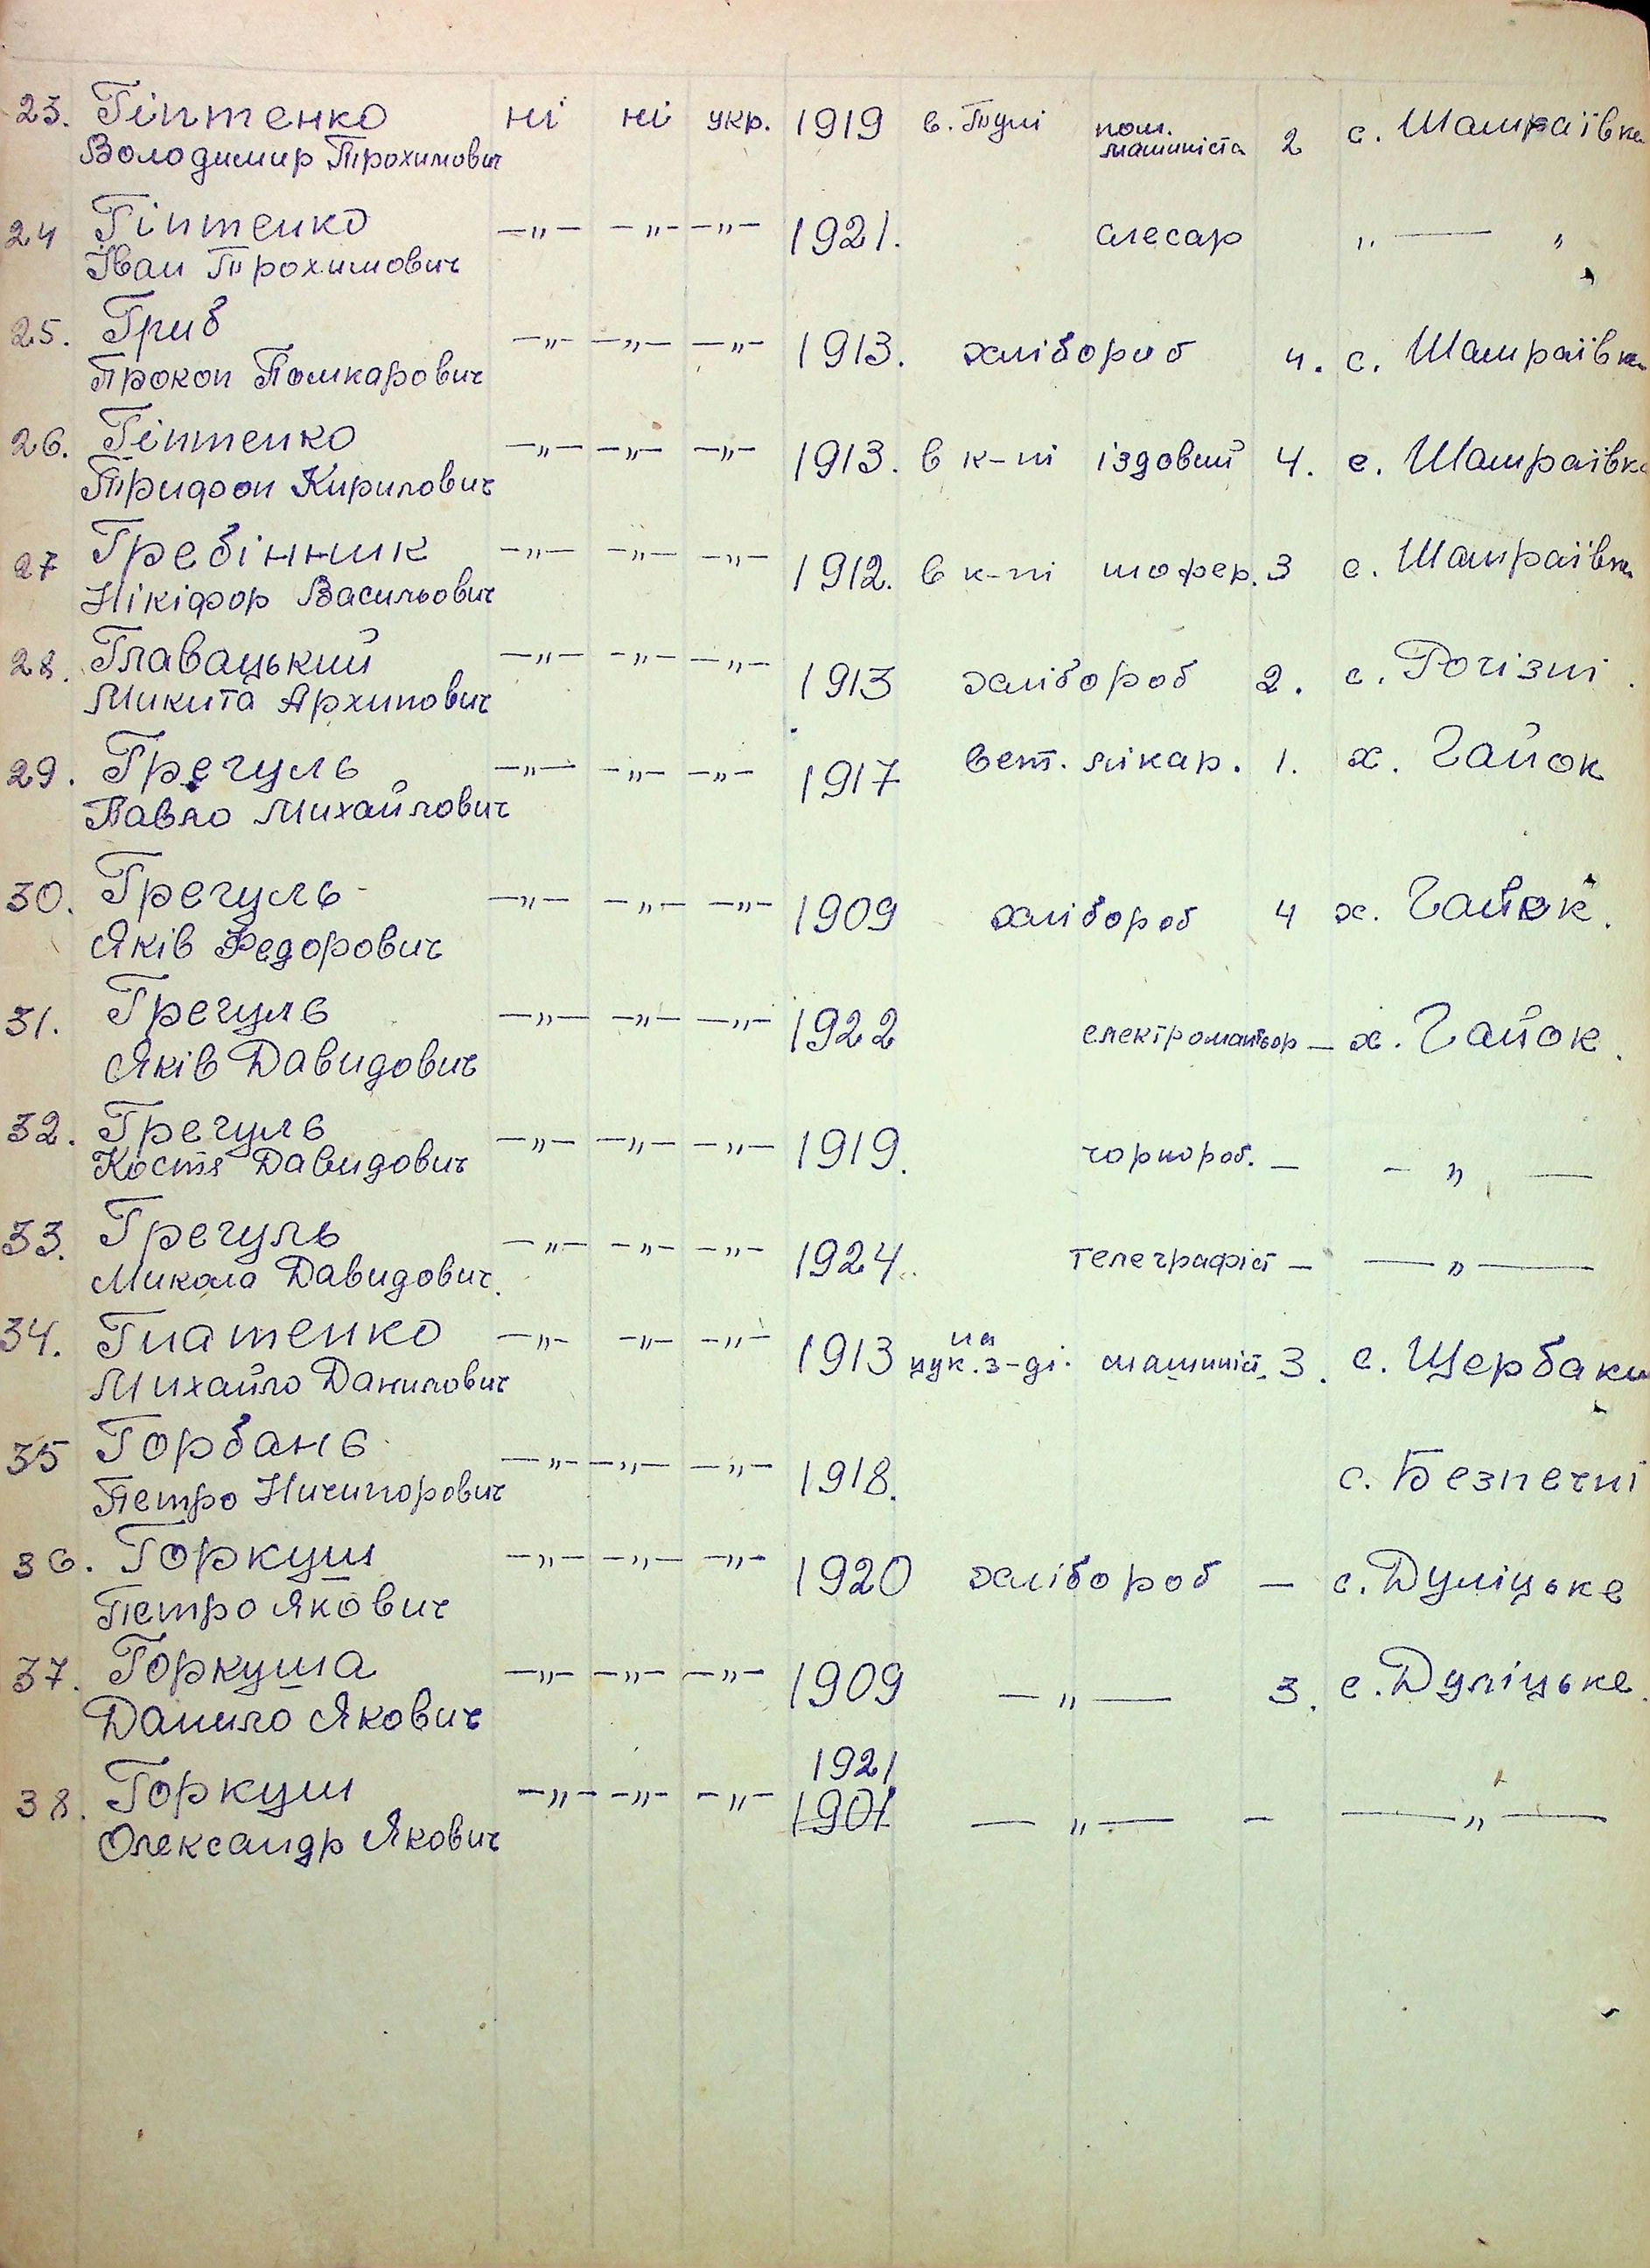 23. Гіптенко ні ні укр. 1919 в. Тулі пом. машиніста 2 с. Шамраївка
Володимир Трохимович
24 Гіптенко —„— —„— —„— 1921. слесар „ — „
Іван Трохимович
25. Гриб —„— —„— —„— 1913. хлібороб 4. с. Шамраївка
Прокоп Полікарович
26. Гіптенко —„— —„— —„— 1913. в к-пі їздовий 4. с. Шамраївка
Тридон Кирилович
27 Гребінник —„— —„— —„— 1912. в к-пі шофер. 3 с. Шамраївка
Нікіфор Васильович
28. Главацький —„— —„— —„— 1913 хлібороб 2. с. Рогізні.
Микита Архипович
29. Грегуль —„— —„— —„— 1917 вет. лікар. 1. х. Гайок
Павло Михайлович
30. Грегуль —„— —„— —„— 1909 хлібороб 4 х. Гайок.
Яків Федорович
31. Грегуль —„— —„— —„— 1922 електромантьор — х. Гайок.
Яків Давидович
32. Грегуль —„— —„— —„— 1919. чорнороб. — — „ —
Костя Давидович
33. Грегуль —„— —„— —„— 1924. телеграфіст — — „ —
Микола Давидович.
34. Гнатенко —„— —„— —„— 1913 на цук. з-ді. машиніст. 3. с. Щербаки
Михайло Данилович
35 Горбань —„— —„— —„— 1918. с. Безпечні
Петро Ничипорович
36. Горкуш —„— —„— —„— 1920 хлібороб — с. Дуліцьке
Петро Якович
37. Горкуша —„— —„— —„— 1909 — „ — 3. с. Дуліцьке.
Данило Якович
1921
38. Горкуш —„— —„— —„— 1901 — „ — — — „ —
Олександр Якович